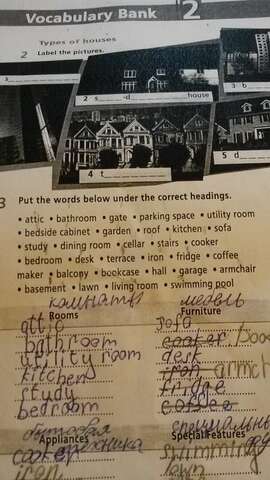 Vocabulary Bank 2
Types of houses
2 Label the pictures.
2 s -d house
3 b
4 t
5 d
3 Put the words below under the correct headings.
• attic • bathroom • gate • parking space • utility room
• bedside cabinet • garden • roof • kitchen • sofa
• study • dining room • cellar • stairs • cooker
• bedroom • desk • terrace • iron • fridge • coffee
maker • balcony • bookcase • hall • garage • armchair
• basement • lawn • living room • swimming pool
комнаты мебель
Rooms Furniture
attic sofa
bathroom cooker
utility room desk
kitchen iron
study fridge
bedroom coffee
бытовая
Appliances Special Features
техника
cooker swimming
iron lawn